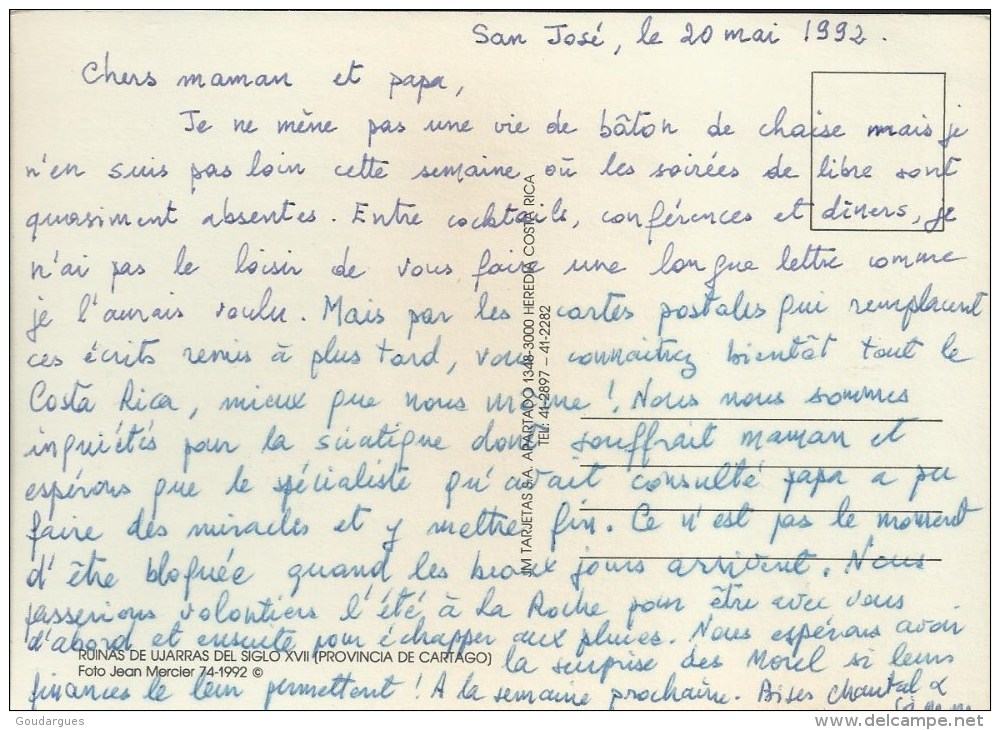 San José, le 20 mai 1992.
Chers maman et papa,
Je ne mène pas une vie de bâton de chaise mais je
n'en suis pas loin cette semaine où les soirées de libre sont
quasiment absentes. Entre cocktails, conférences et dîners, je
n'ai pas le loisir de vous faire une longue lettre comme
je l'aurais voulu. Mais par les cartes postales qui remplacent
ces écrits remis à plus tard, vous connaitrez bientôt tout le
Costa Rica, mieux que nous même ! Nous nous sommes
inquiétés pour la sciatique dont souffrait maman et
espérons que le spécialiste qu'avait consulté papa a pu
faire des miracles et y mettre fin. Ce n'est pas le moment
d'être bloquée quand les beaux jours arrivent. Nous
passerions volontiers l'été à la Roche pour être avec vous
d'abord et ensuite pour échapper aux pluies. Nous espérons avoir
la surprise des Morel si leurs
finances le leur permettent ! A la semaine prochaine. Bises Chantal &
JM TARJETAS S.A. APARTADO 1348-3000 HEREDIA COSTA RICA
TEL: 41-2897 – 41-2282
RUINAS DE UJARRAS DEL SIGLO XVII (PROVINCIA DE CARTAGO)
Foto Jean Mercier 74-1992 ©
Goudargues
delcampe.net